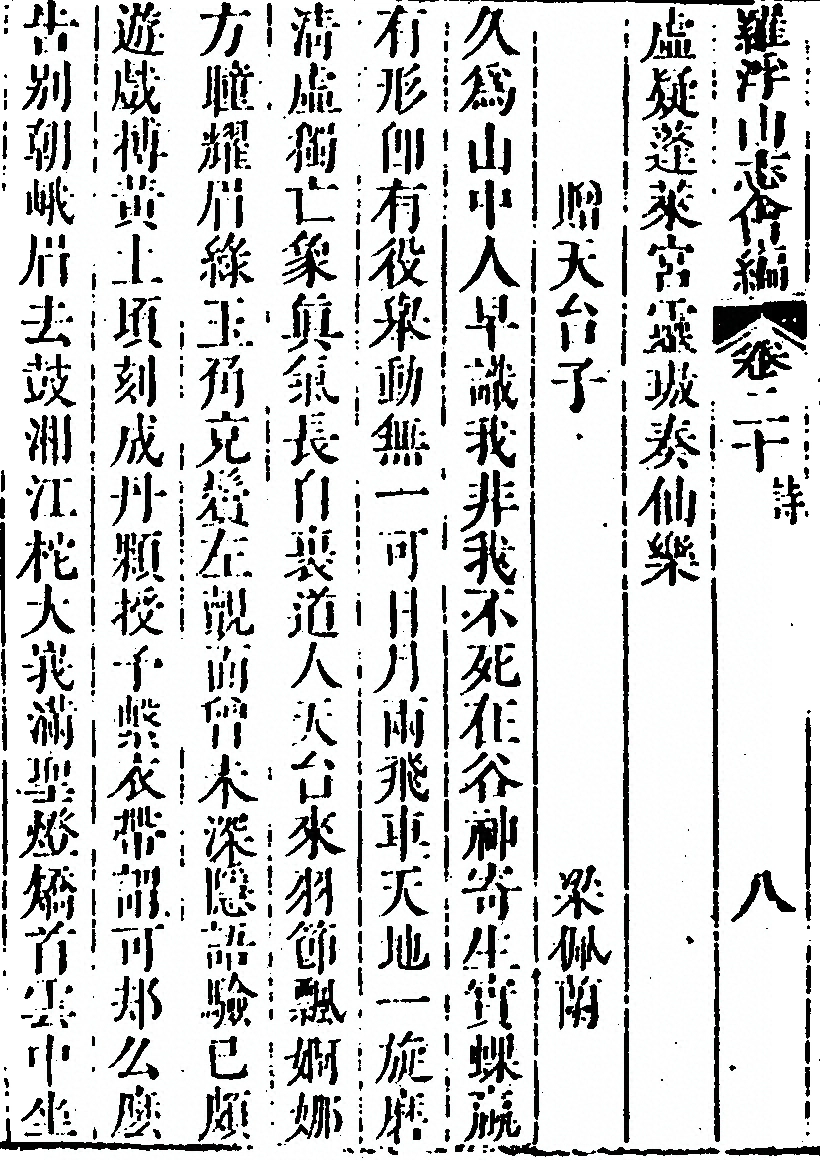 羅浮山志會編 卷二十 詩 八
虛疑蓬萊宮靈璈奏仙樂
贈天台子 梁佩蘭
久爲山中人早識我非我不死在谷神寄生實蜾蠃
有形即有役舉動無一可日月兩飛車天地一旋磨
淸虛獨亡象眞氣長自裹道人天台來羽節飄婀娜
方瞳耀眉綠玉角克鬢左覿面曾未深隱語驗已頗
遊戲摶黃土頃刻成丹顆授予繫衣帶謂可却么麽
告别朝峨眉去鼓湘江柁大峩滿聖燈矯首雲中坐